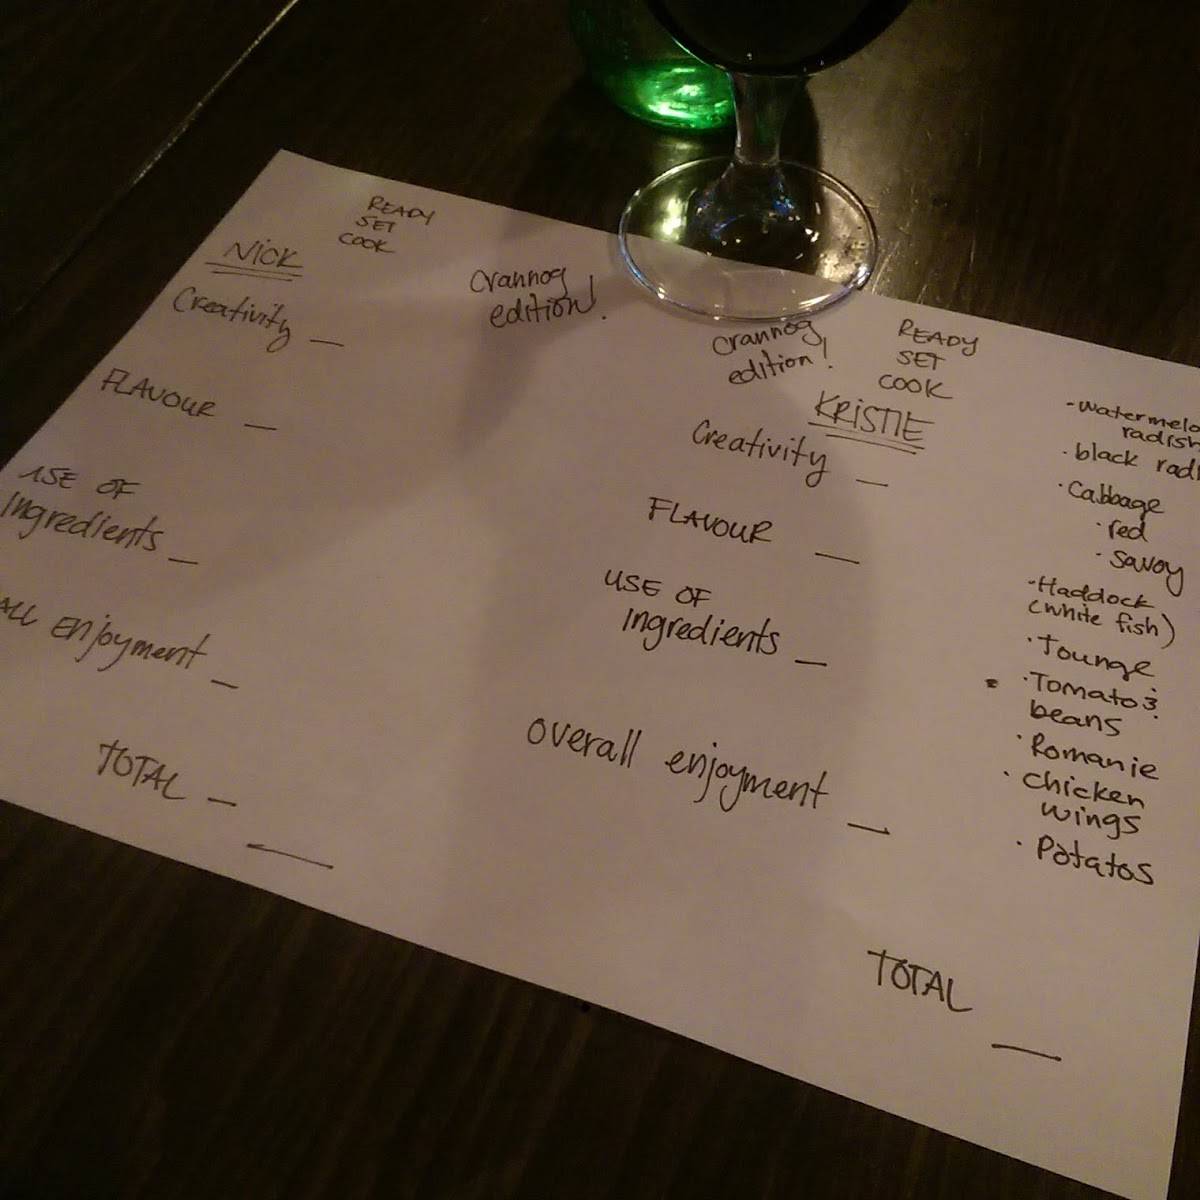 READY
SET
COOK
NICK
Crannog
edition!
Creativity _
FLAVOUR _
USE OF
ingredients _
ALL enjoyment _
TOTAL _
Crannog
edition!
READY
SET
COOK
KRISTIE
Creativity _
FLAVOUR _
USE OF
ingredients _
Overall enjoyment _
TOTAL _
-Watermelo
radish
·black radi
·Cabbage
·red
·Savoy
-Haddock
(white fish)
·Tounge
·Tomato &
beans
·Romanie
·Chicken
wings
·Potatos